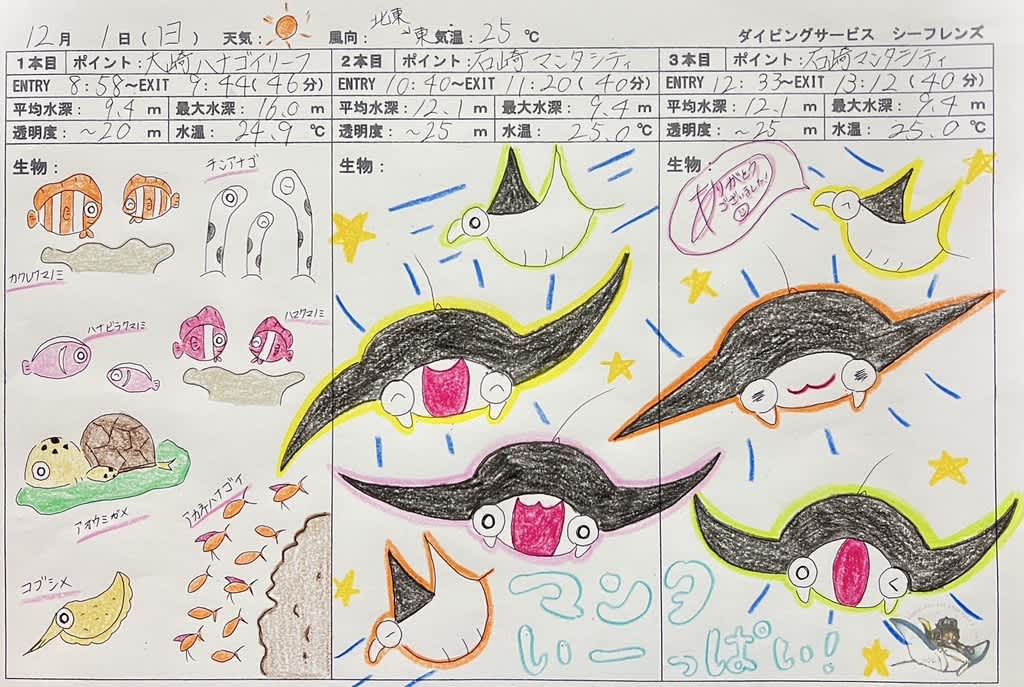 12月 1日(日) 天気: 風向: 北東→東 気温: 25℃ ダイビングサービス シーフレンズ
1本目 ポイント: 大崎ハナゴイリーフ
ENTRY 8:58~EXIT 9:44(46分)
平均水深: 9.4 m 最大水深: 16.0 m
透明度: ~20 m 水温: 24.9 ℃
生物:
チンアナゴ
カクレクマノミ
ハナビラクマノミ
ハマクマノミ
アオウミガメ
アカネハナゴイ
コブシメ
2本目 ポイント: 石崎マンタシティ
ENTRY 10:40~EXIT 11:20(40分)
平均水深: 12.1 m 最大水深: 9.4 m
透明度: ~25 m 水温: 25.0 ℃
生物:
3本目 ポイント: 石崎マンタシティ
ENTRY 12:33~EXIT 13:12(40分)
平均水深: 12.1 m 最大水深: 9.4 m
透明度: ~25 m 水温: 25.0 ℃
生物:
ありがとう
ございました!
マンタ
いーっぱい!